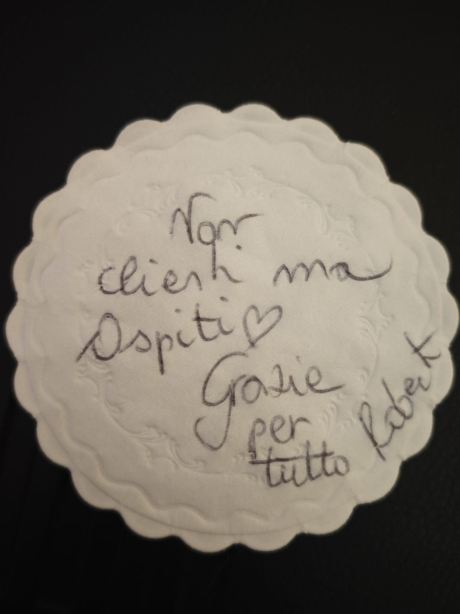 Non
clienti ma
Ospiti ♡
Grazie
per
tutto
Robert